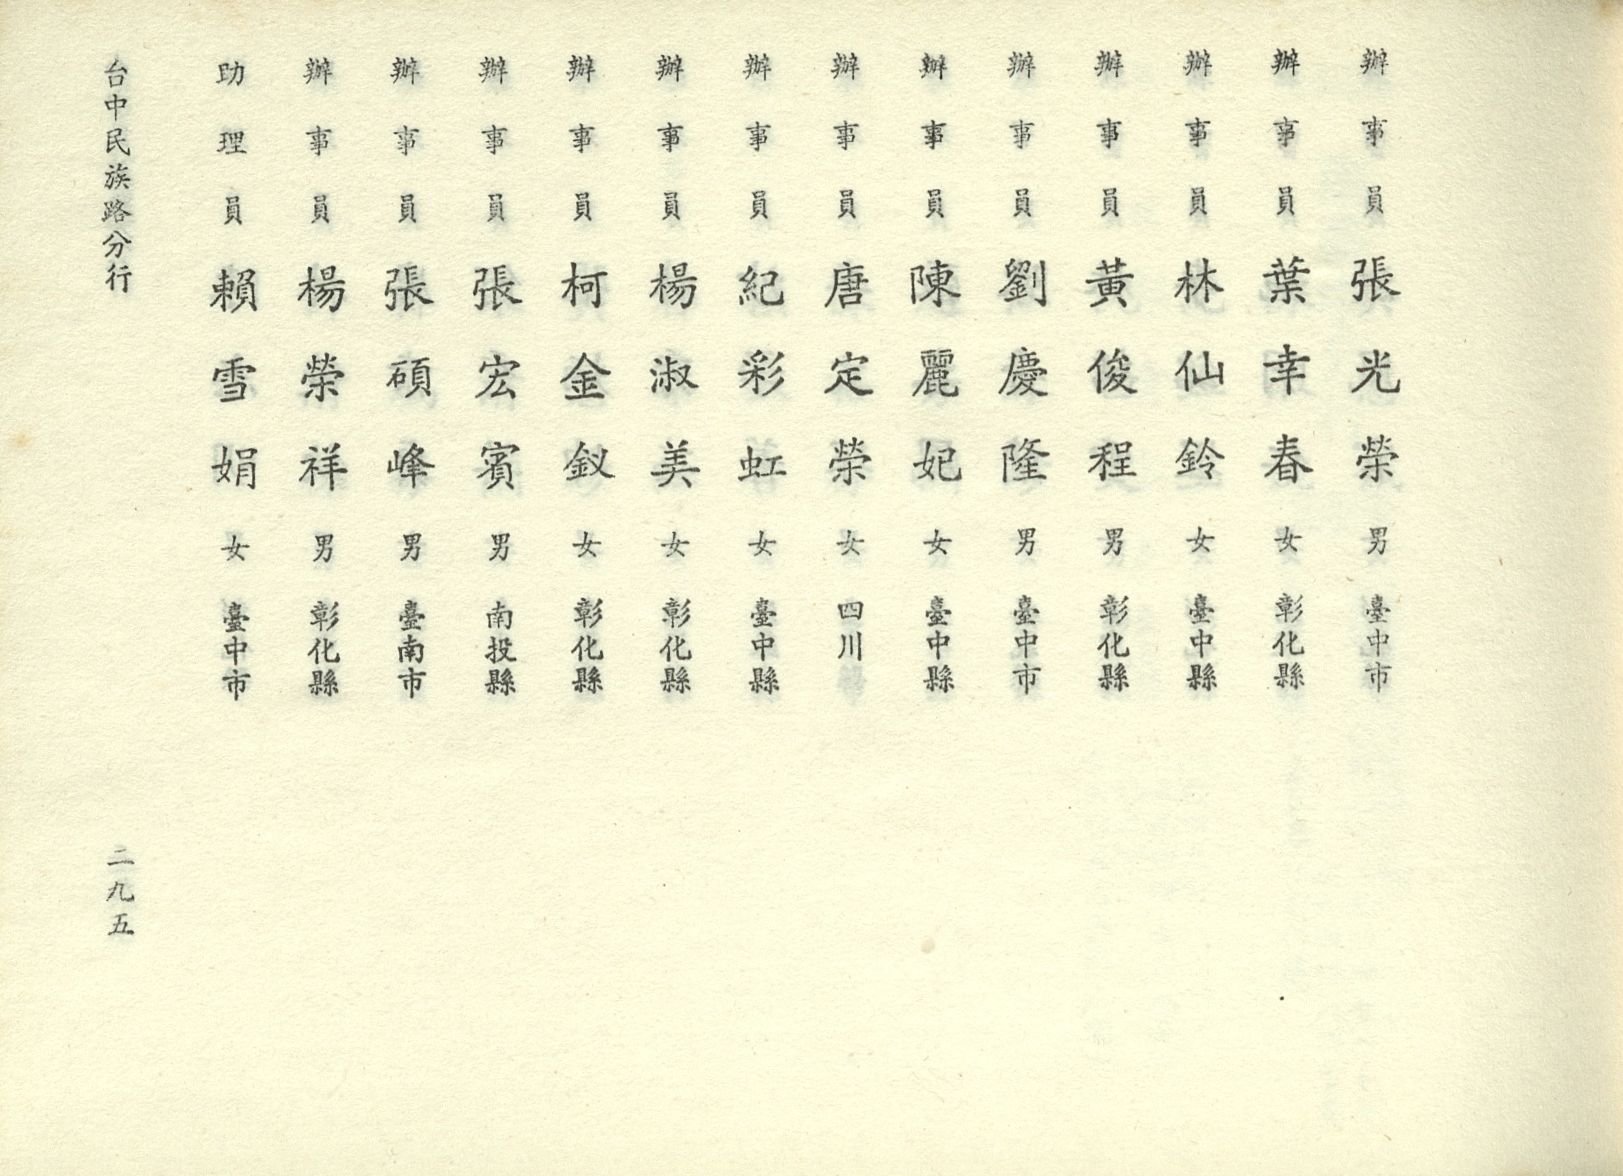 辦事員張光榮男臺中市
辦事員葉幸春女彰化縣
辦事員林仙鈴女臺中縣
辦事員黃俊程男彰化縣
辦事員劉慶隆男臺中市
辦事員陳麗妃女臺中縣
辦事員唐定榮女四川
辦事員紀彩虹女臺中縣
辦事員楊淑美女彰化縣
辦事員柯金釵女彰化縣
辦事員張宏賓男南投縣
辦事員張碩峰男臺南市
辦事員楊榮祥男彰化縣
助理員賴雪娟女臺中市
台中民族路分行
二九五